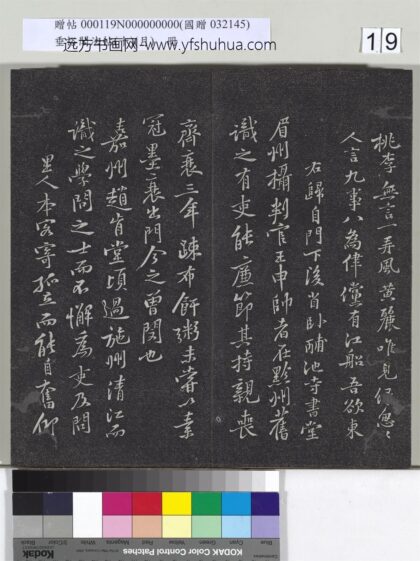 赠帖 000119N000000000(國贈 032145)
远方书画网-www.yfshuhua.com
19
桃李無言一再風黃鸝唯見綠忽忽
人言九事八為律儻有江船吾欲東
右歸自門下後省臥酺池寺書堂
眉州攝判官王申帥者在黔州舊
識之有吏能廉節其持親喪
齊衰三年疎布飦粥未嘗以素
冠墨衰出門今之曾閔也
嘉州趙肯堂頃過施州清江而
識之學問之士而不懈為吏及問
里人本寒寄孤立而能自奮仰
Blue
Cyan
Green
Yellow
Red
Magenta
White
3/Color
Black
Kodak
KODAK Color Control Patches